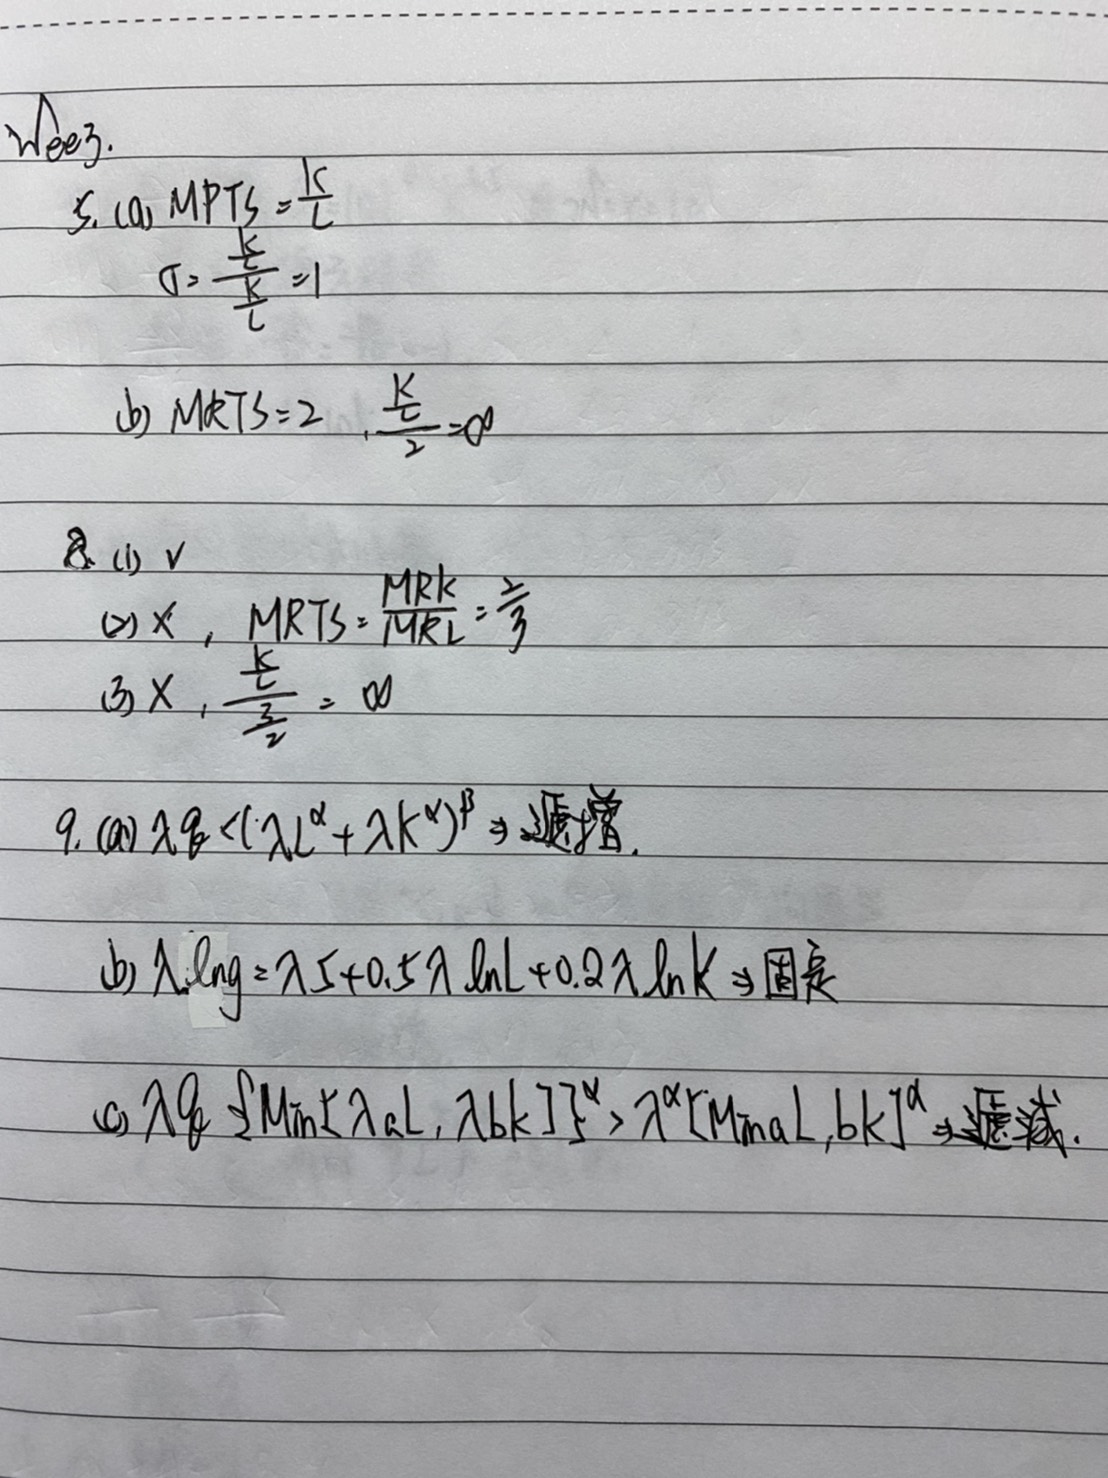 Wee3.
5. (a) MPTS = K/L
σ = (K/L)/(K/L) = 1
(b) MRTS = 2 , (K/L)/2 = ∞
8. (1) ✓
(2) X , MRTS = MRK/MRL = 2/3
(3) X , (K/L)/(3/2) = ∞
9. (a) λq < (λL^α + λK^α)^β ⇒ 遞增.
(b) λ.lng = λ5 + 0.5λ lnL + 0.2λ.lnK ⇒ 固定
(c) λq {Min[λaL, λbk]}^α > λ^α[MinaL, bk]^α ⇒ 遞減.